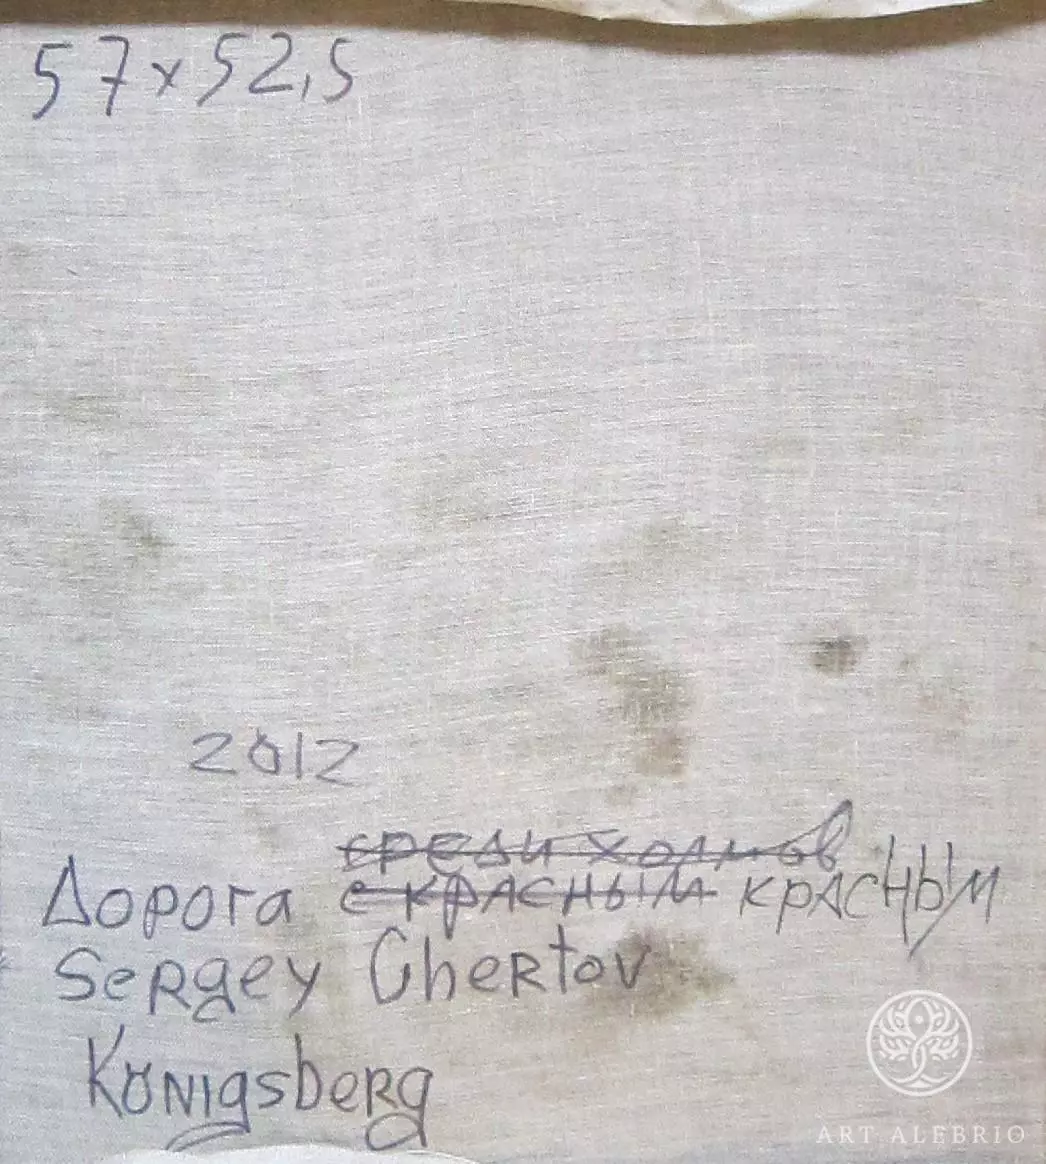 57 x 52,5
2012
среди холмов
Дорога с красным красным
Sergey Chertov
Königsberg
ART ALEBRIO